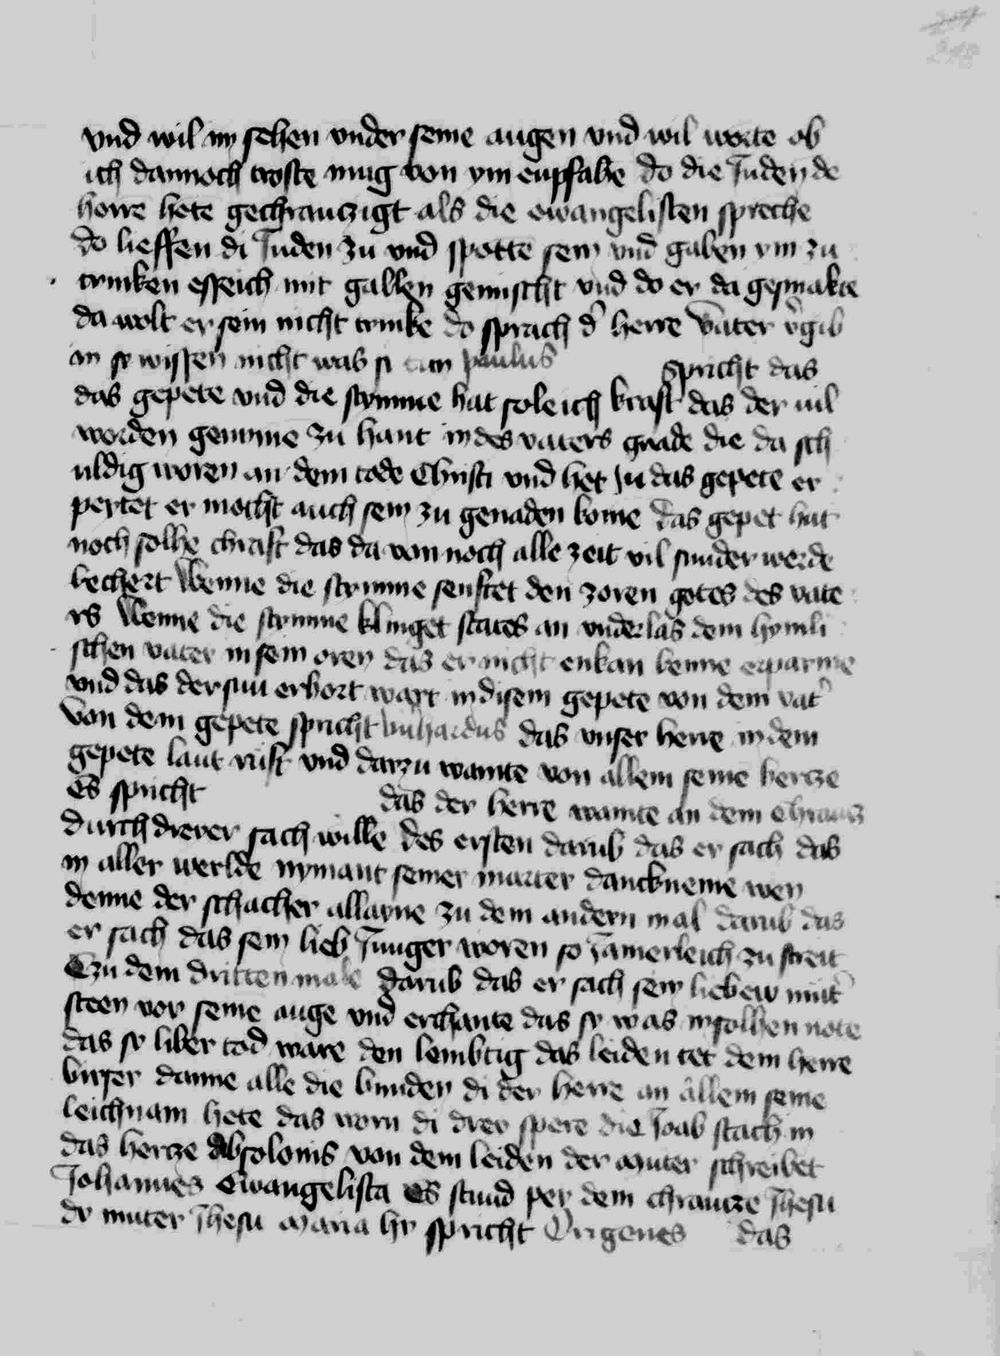 vnd wil im sehen vnder seine augen vnd wil warte ob
ich dannoch troste mug von ym enpfahē do die Juden dē
herrē hetē gechrauczigt als die ewangelisten sprechē
do lieffen di Juden zu vnd spottē sein vnd gaben ym zu
trinken essich mit gallen gemischt vnd do er da gesmakte
da wolt er sein nicht trinkē do sprach d' herre Vater v'gib
in sy wissen nicht was si tun paulus spricht das
das gepete vnd die stymme hat soleich kraft das der vil
worden genumē zu hant in des vaters gnade die da sch
uldig woren an dem tode Christi vnd het Judas gepete er
pertet er mocht auch sein zu genaden komē das gepet hat
noch solhe chraft das da von noch alle zeit vil sunder werdē
bechert Wenne die stymme senftet den zoren gotes des vate
rs Wenne die stymme klinget states an vnderlas dem hymli
schen vater in sein oren das er nicht enkan denne erparmē
vnd das der sun erhort wart in disem gepete von dem vat'
Von dem gepete spricht bernhardus das vnser herre in dem
gepete laut ruft vnd darzu wainte von allem seinē hercze
Es spricht das der herre wainte an dem chraucz
durch dreyer sach wille des ersten darūb das er sach das
in aller werlde nymant seiner marter dancknēme wen
denne der schacher allayne zu dem andern mal darūb das
er sach das sein lieb Junger woren so Jamerleich zu streit
Czu dem dritten male darūb das er sach sein liebew mut'
steen vor seinē augē vnd erchante das sy was in solhen notē
das sy liber tod ware den lembtig das leiden tet dem herrē
wirser danne alle die wunden di der herre an allem seinē
leichnam hete das worn di drey spere die Joab stach in
das hercze Absolonis von dem leiden der muter schreibet
Johannes Ewangelista Es stund pey dem chrautze Jhesu
dy muter Jhesu maria hy spricht Origenes das